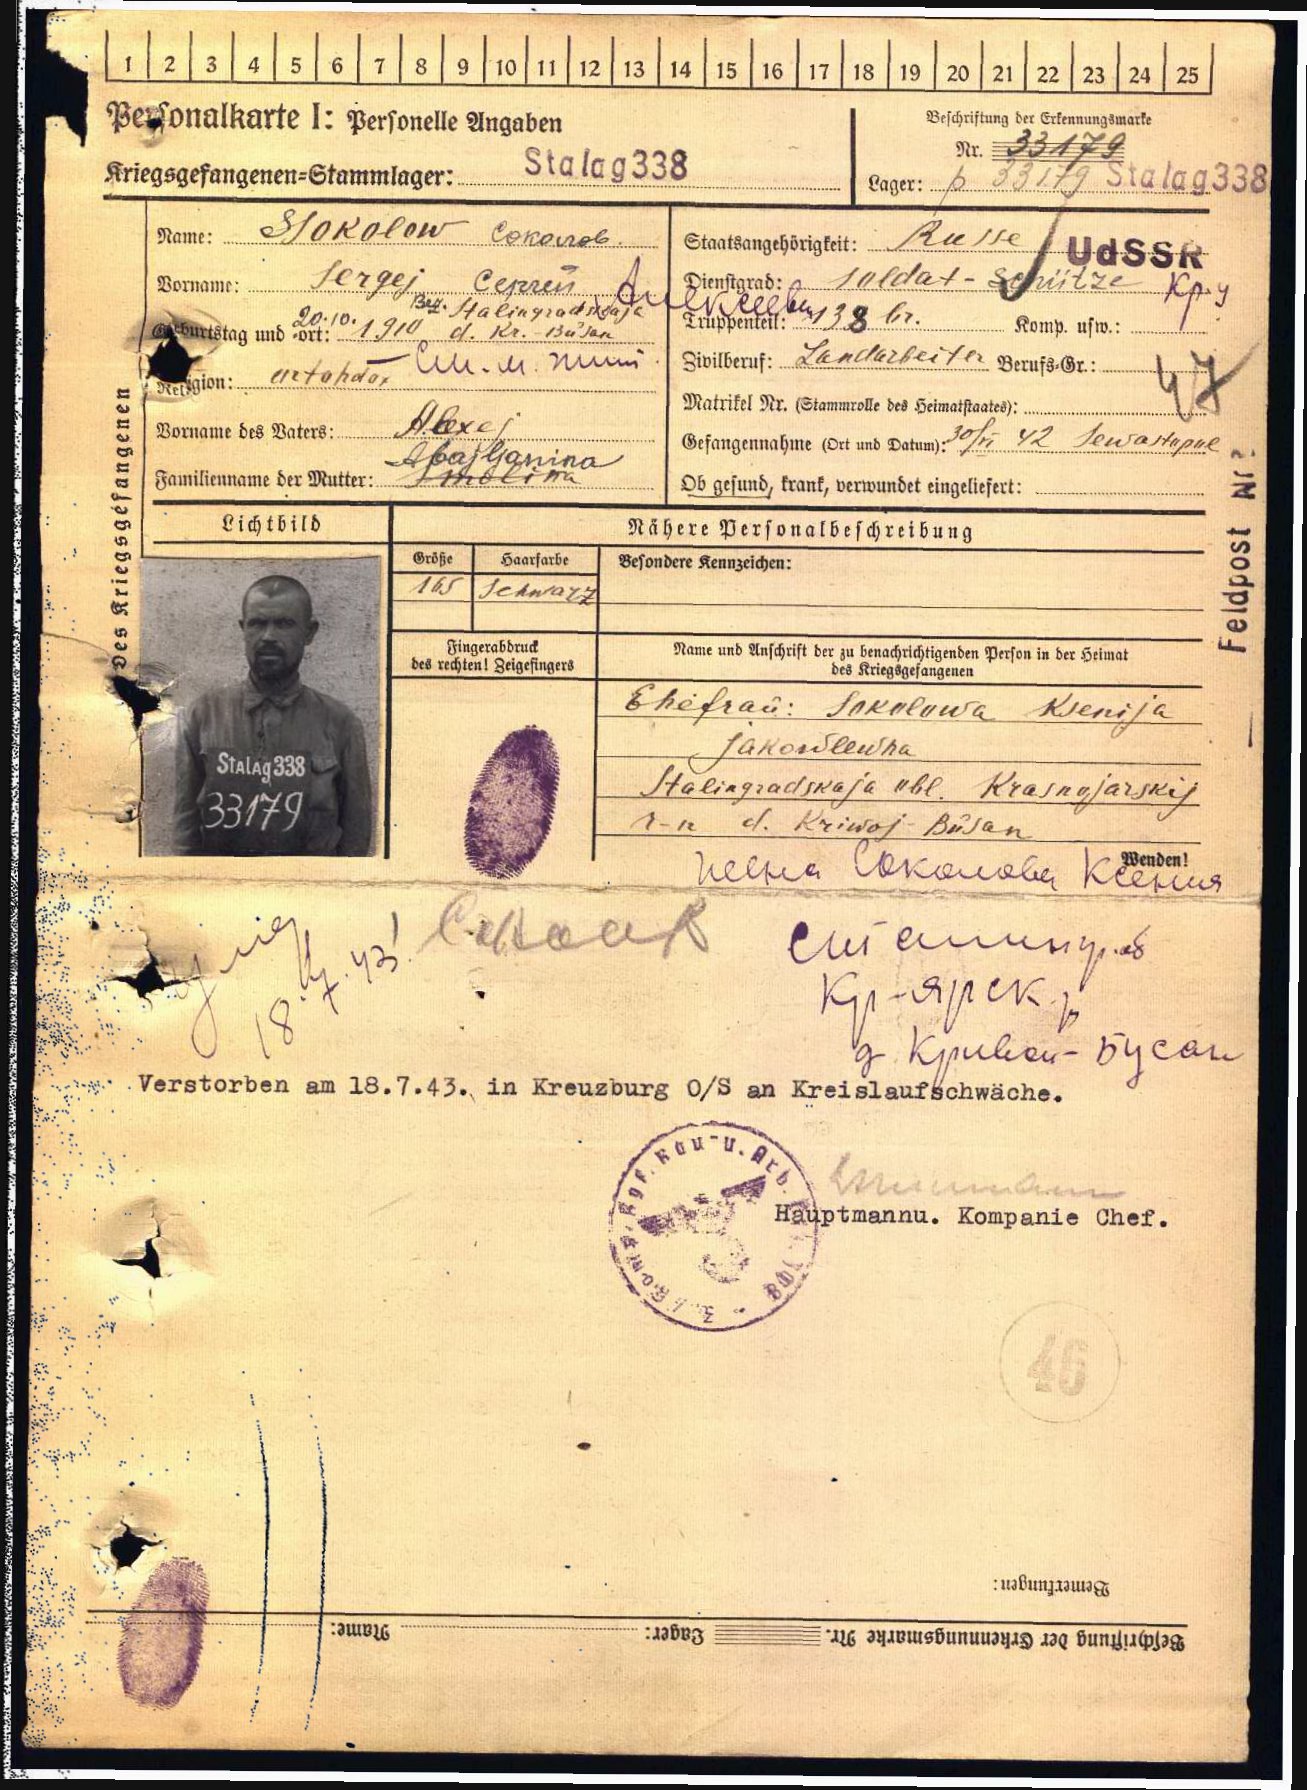 1 2 3 4 5 6 7 8 9 10 11 12 13 14 15 16 17 18 19 20 21 22 23 24 25
Personalkarte I: Personelle Angaben
Beschriftung der Erkennungsmarke
Nr. 33179
Kriegsgefangenen=Stammlager: Stalag 338
Lager: 33179 Stalag 338
Des Kriegsgefangenen
Name: Ssokolow Соколов.
Staatsangehörigkeit: Russe UdSSR
Vorname: Sergej Сергей Алексеевич
Dienstgrad: Soldat - Schütze Кр-ц
Bez. Stalingradskaja
Geburtstag und -ort: 20.10. 1910 d. Kr. - Busan
Truppenteil: 138 br. Komp. usw.:
Religion: ortohdox
Zivilberuf: Landarbeiter Berufs-Gr.:
47
Matrikel Nr. (Stammrolle des Heimatstaates):
Vorname des Vaters: Alexej
Gefangennahme (Ort und Datum): 30/VI 42 Sewastopol
Familienname der Mutter:
Ob gesund, krank, verwundet eingeliefert:
Feldpost Nr?
Lichtbild
Nähere Personalbeschreibung
Größe Haarfarbe Besondere Kennzeichen:
165 Schwarz
Fingerabdruck
des rechten! Zeigefingers
Name und Anschrift der zu benachrichtigenden Person in der Heimat
des Kriegsgefangenen
Stalag 338
33179
Ehefrau: Sokolowa Ksenija
Jakowlewna
Stalingradskaja obl. Krasnojarskij
r-n d. Kriwoj-Busan
Wenden!
жена Соколова Ксения
18.7.43!
Сталингр. об
Кр-ярск р
д Кривой-Бусан
Verstorben am 18.7.43. in Kreuzburg O/S an Kreislaufschwäche.
Kgf. Bau-u. Arb.
Hauptmannu. Kompanie Chef.
46
Bemerkungen:
Beschriftung der Erkennungsmarke Nr. Lager: Name: